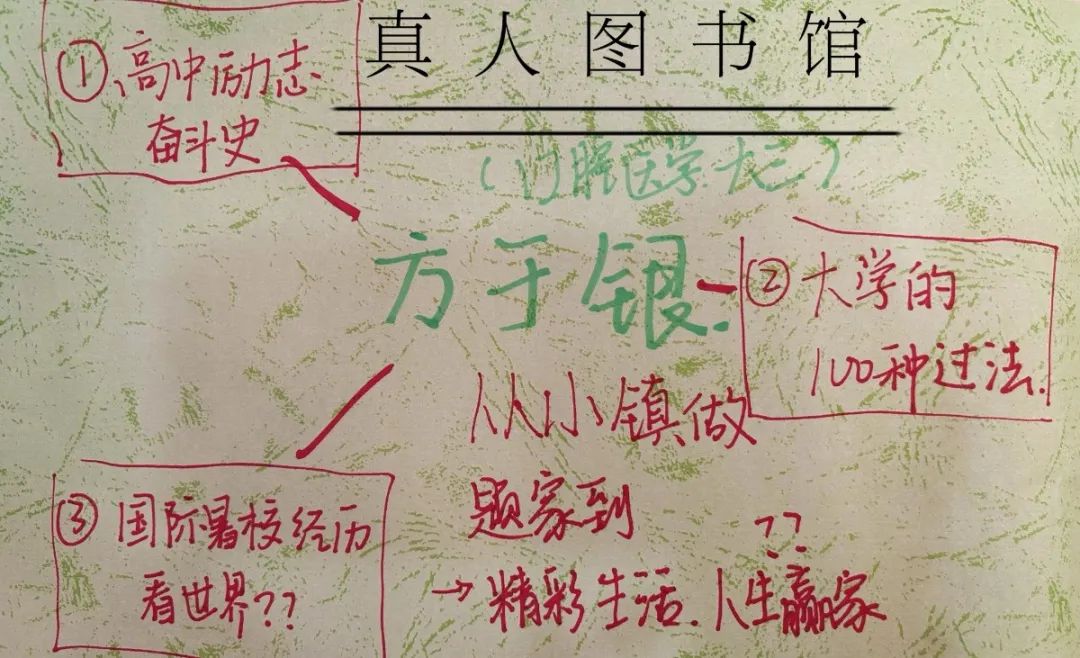 真人图书馆
①、高中励志
奋斗史
(口腔医学.大三)
方于银.
②大学的
100种过法.
从小镇做
题家到
??
→精彩生活.人生赢家
③国际暑校经历
看世界??